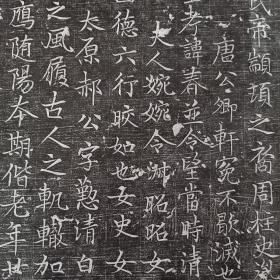 氏帝顓頊之裔周封史
唐公卿軒冕不歇滅
孝諱春並令望當時清
夫人婉婉令淑昭昭女
德六行皎如也女史女
太原郝公字懃清白
之風履古人之軌轍加
鴈随陽本期偕老年